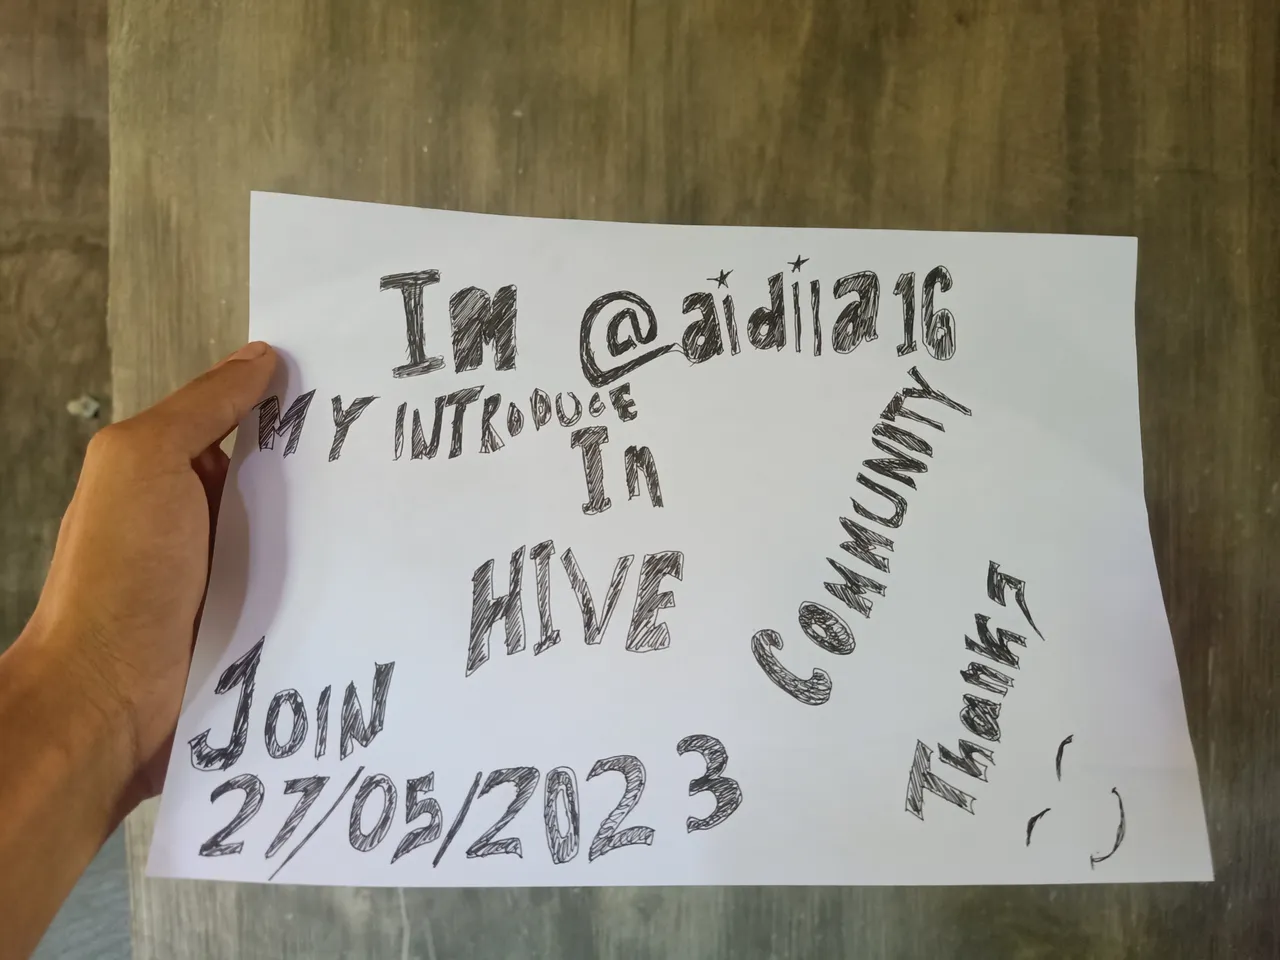 Im @aidila16
MY INTRODUCE
In
HIVE
COMMUNITY
JOIN
27/05/2023
Thanks